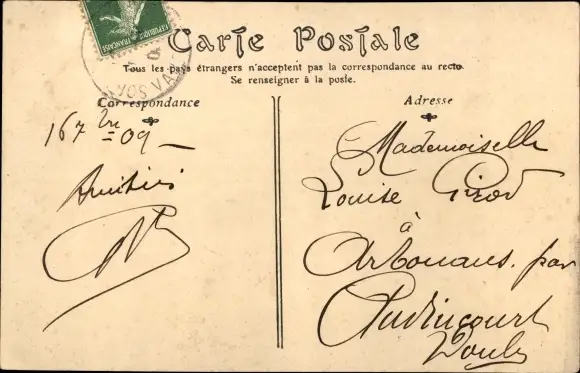 RÉPUBLIQUE FRANÇAISE
Carte Postale
Tous les pays étrangers n'acceptent pas la correspondance au recto.
Se renseigner à la poste.
Correspondance
16 7bre 09
Amitiés
Adresse
Mademoiselle
Louise Girod
à
Arbouans par
Audincourt
Doubs